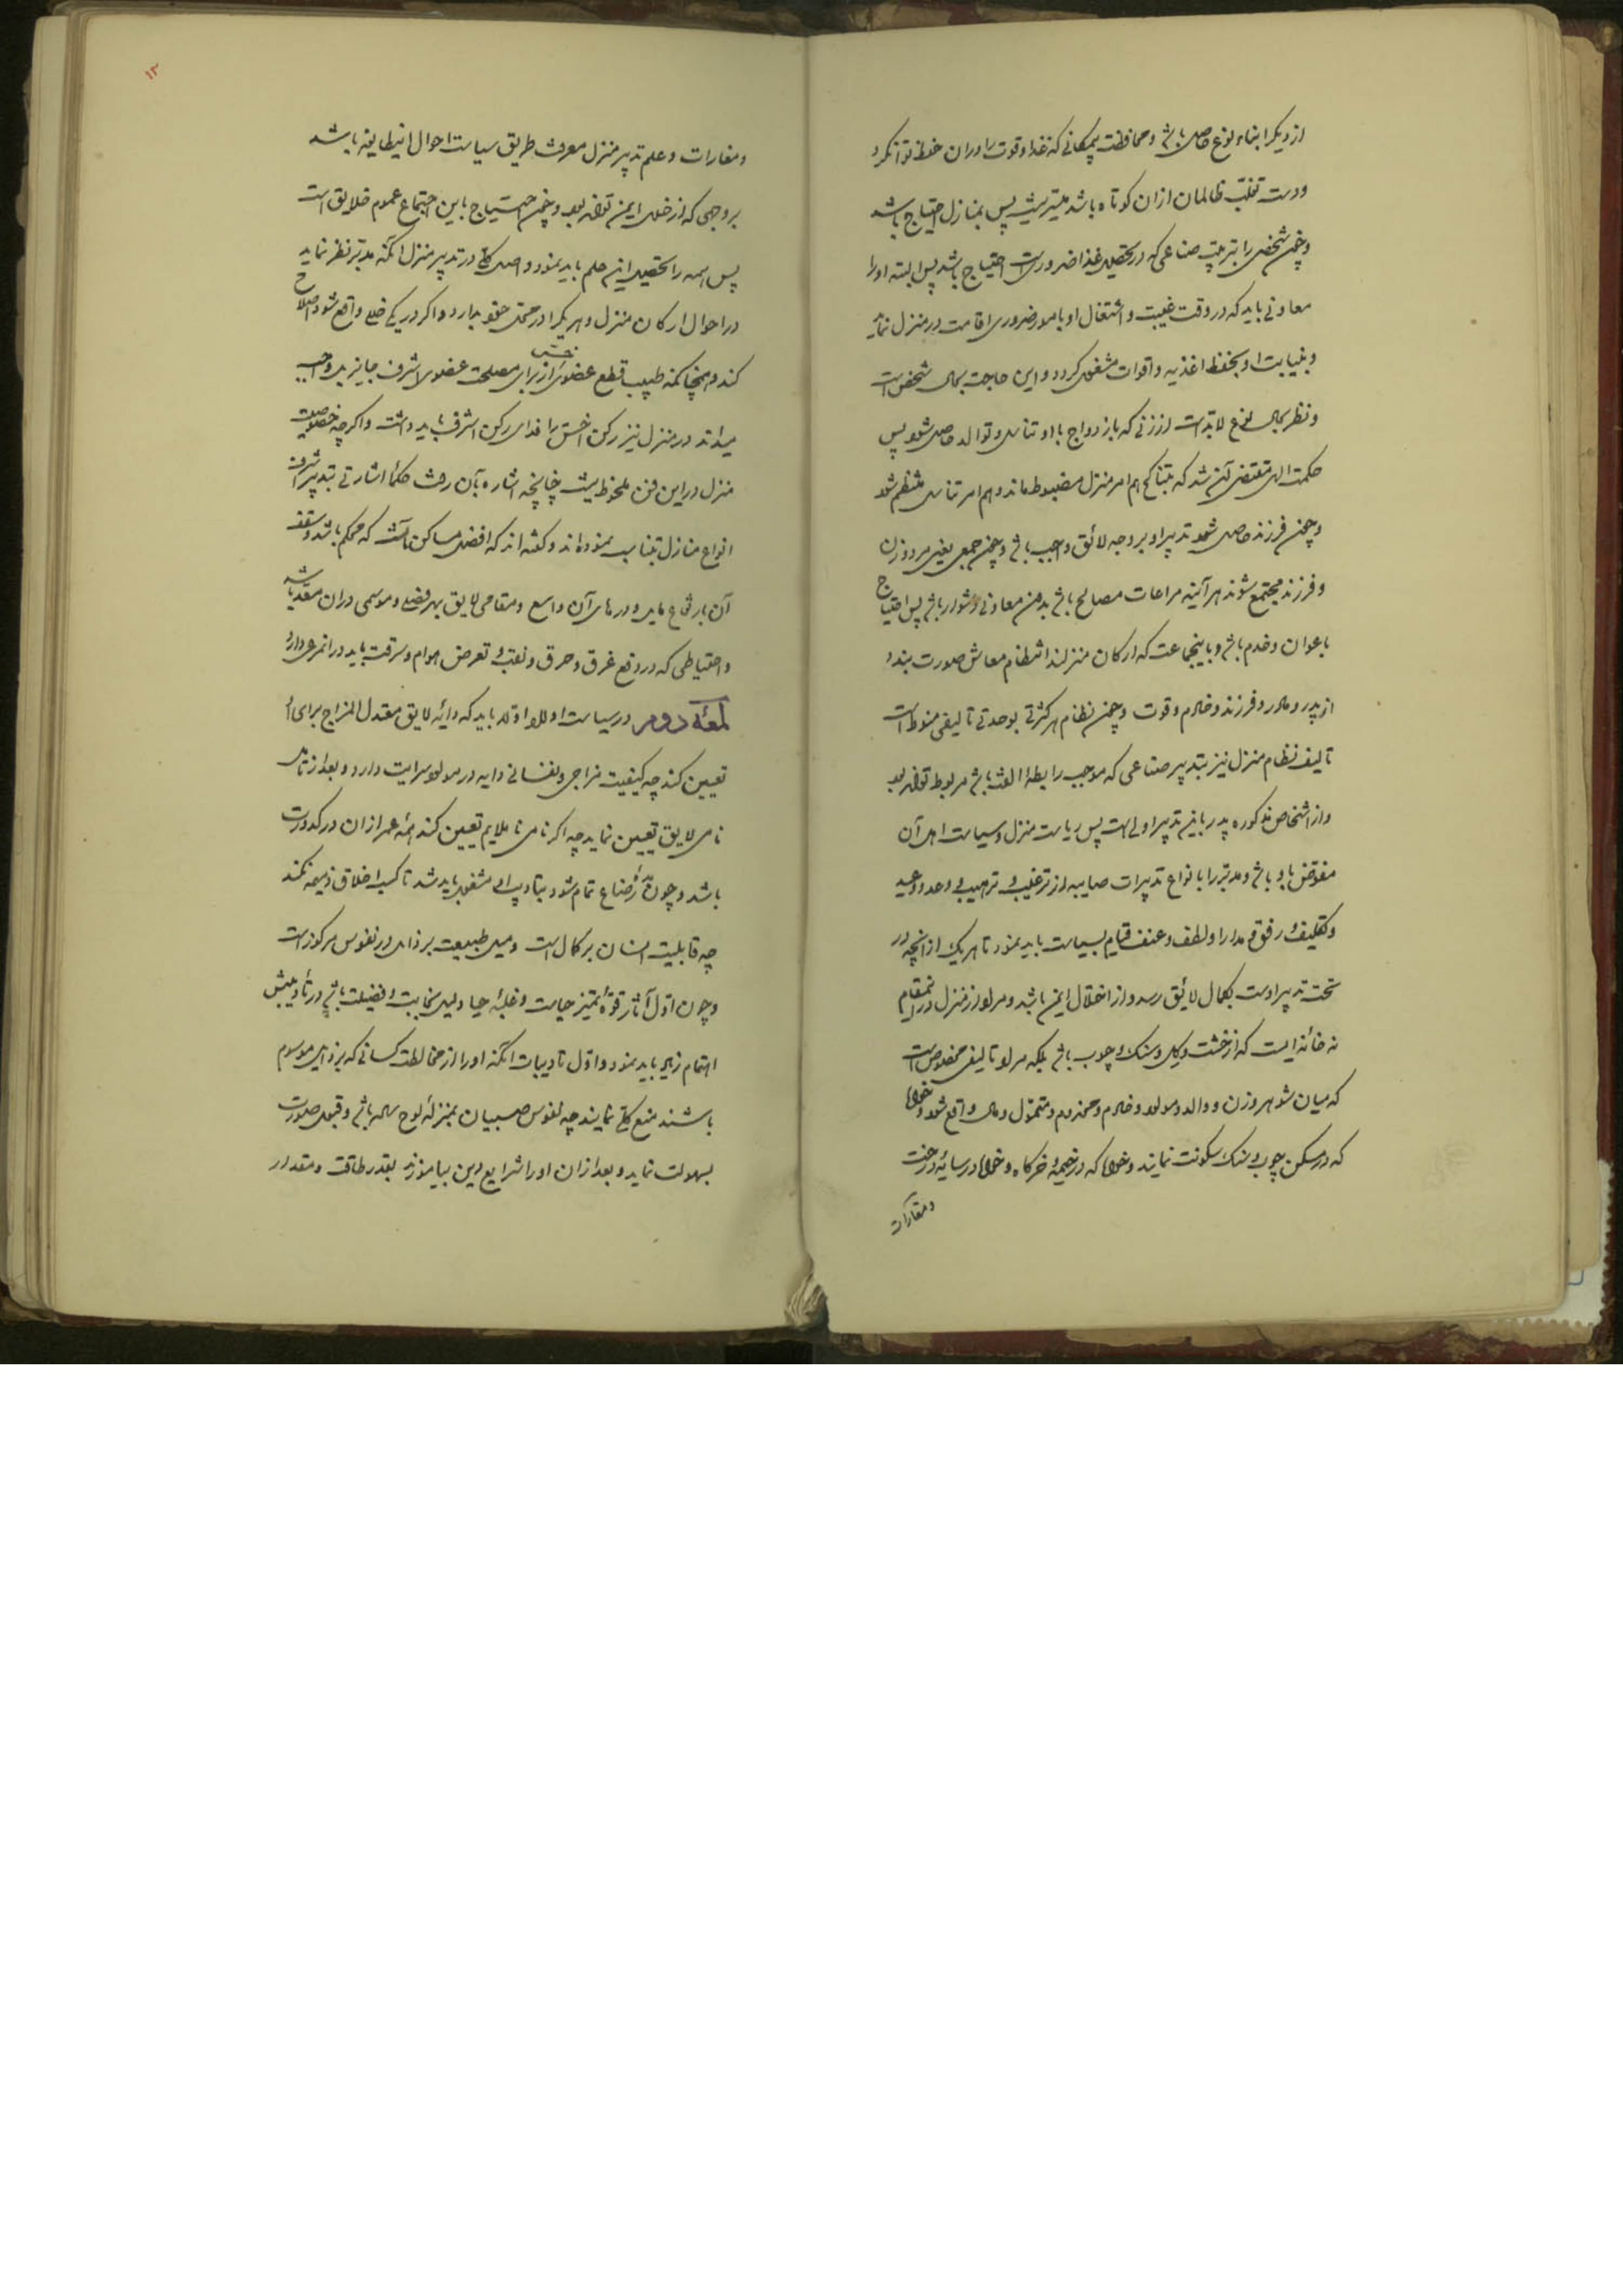 از دیگر ابناء نوع حاصل باشد و محافظت بمکانی که غذا و قوت را در ان حفظ توان کرد
و دست تغلب ظالمان ازان کوتاه باشد میسر نیست پس بمنازل احتیاج باشد
و چون شخص را بترتیب صناعی که در تحصیل غذا ضروریست احتیاج باشد پس البته او را
معاونی باید که در وقت غیبت و اشتغال او بامور ضروری اقامت در منزل نماید
و بنیابت او بحفظ اغذیه و اقوات مشغول کردد و این حاجت بحال شخص است
و نظر بحال نوع لابد است از زنی که بازدواج با او تناسل و توالد حاصل شود پس
حکمت الهی مقتضی آن شد که بتناکح هم امر منزل مضبوط ماند و هم امر تناسل منتظم شود
و چون فرزند حاصل شود تدبیر او بر وجه لائق واجب باشد و چون جمعی یعنی مرد و زن
و فرزند مجتمع شوند هر آینه مراعات مصالح باشد بدون معاونی دشوار باشد پس احتیاج
باعوان و خدم باشد و باینجماعت که ارکان منزلند انتظام معاش صورت بندد
از پدر و مادر و فرزند و خادم و قوت و چون نظام هر کثرتی بوحدتی تالیفی منوط است
تالیف نظام منزل نیز بتدبیر صناعی که موجب رابطه الفت باشد مربوط تواند بود
و از اشخاص مذکوره پدر باین تدبیر اولی است پس ریاست منزل و سیاست اهل آن
مفوض باو باشد و مدبر را بانواع تدبیرات صایبه از ترغیب و ترهیب و وعد و وعید
و تکلیف و رفق و مدارا و لطف و عنف قیام بسیاست باید نمود تا هر یک از آنچه در
تحت تدبیر اوست بکمال لائق رسد و از اختلال ایمن باشد و مراد از منزل در اینمقام
نه خانه ایست که از خشت و کل و سنک و چوب باشد بلکه مراد تالیفی مخصوص است
که میان شوهر و زن و والد و مولود و خادم و مخدوم و متمول و مال واقع شود و خواه
که در مسکن چوب و سنک سکونت نمایند و خواه که در خیمه و خرکاه و خواه در سایه درخت
و مغارات
۱۳
و مغارات و علم تدبیر منزل معرفت طریق سیاست احوال اینطایفه باشد
بر وجهی که از خلل ایمن تواند بود و چون احتیاج باین اجتماع عموم خلایق است
پس همه را تحصیل این علم باید نمود و اصل کلی در تدبیر منزل آنکه مدبر نظر نماید
در احوال ارکان منزل و هر یک را در حق خود بدارد و اکر در یکی خللی واقع شود اصلاح
کند و همچنانکه طبیب قطع عضوی اخس از برای مصلحت عضوی اشرف جایز بل واجب
میداند در منزل نیز رکن اخس را فدای رکن اشرف باید داشت و اکرچه خصوصیت
منزل در این فن ملحوظ نیست چنانچه اشاره بآن رفت حکما اشارتی بتدبیر اشرف
انواع منازل بتناسب نموده اند و کفته اند که افضل مساکن آنست که محکم باشد و سقف
آن بارتفاع مایل و درهای آن واسع و مقامی لایق بهر فصلی و موسمی در ان معد باشد
و احتیاطی که در دفع غرق و حرق و نقب و تعرض هوام و سرقت باید در آن مرعی دارد
لمعه دوم در سیاست اولاد اولا باید که دایه لایق معتدل المزاج برای او
تعیین کند چه کیفیت مزاجی و نفسانی دایه در مولود سرایت دارد و بعد از تامل
نامی لایق تعیین نماید چه اکر نامی ناملایم تعیین کند همه عمر از ان در کدورت
باشد و چون مدت رضاع تمام شود بتادیب او مشغول باید شد تا کسب اخلاق ذمیمه نکند
چه قابلیت انسان بر کمال است و میل طبیعت بر ذایل در نفوس مرکوز است
و چون اول آثار قوه تمیز حیاست و غلبه حیا دلیل نجابت و فضیلت باشد در تادیبش
اهتمام زیاد باید نمود و اول تادیبات آنکه او را از مخالطت کسانی که برذایل موسوم
باشند منع کلی نمایند چه نفوس صبیان بمنزله لوح ساده باشد و قبول صورت
بسهولت نماید و بعد از ان او را شرایع دین بیاموزند بقدر طاقت و مقدار